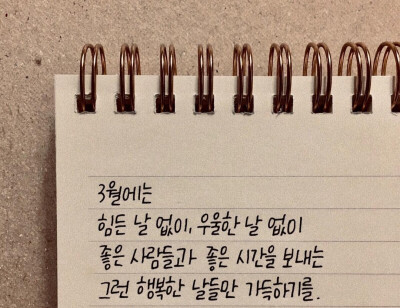 3월에는
힘든 날 없이, 우울한 날 없이
좋은 사람들과 좋은 시간을 보내는
그런 행복한 날들만 가득하기를.